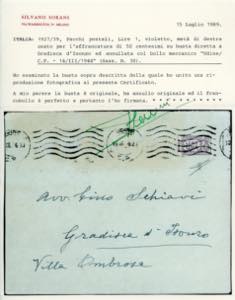 SILVANO SORANI
VIA MANZONI 38 MILANO
15 Luglio 1989.
ITALIA: 1927/39, Pacchi postali, Lire 1, violetto, metà di destra
usato per l'affrancatura di 50 centesimi su busta diretta a
Gradisca d'Isonzo ed annullata col bollo meccanico "Udine/
C.P. - 16/III/1944" (Sass. N. 30).
Ho esaminato la busta sopra descritta della quale ho unito una ri-
produzione fotografica al presente Certificato.
A mio parere la busta è originale, ha annullo originale ed il fran-
cobollo è perfetto e pertanto l'ho firmata.
Avv. Gino Schiavi
Gradisca d'Isonzo
Villa Ombrosa